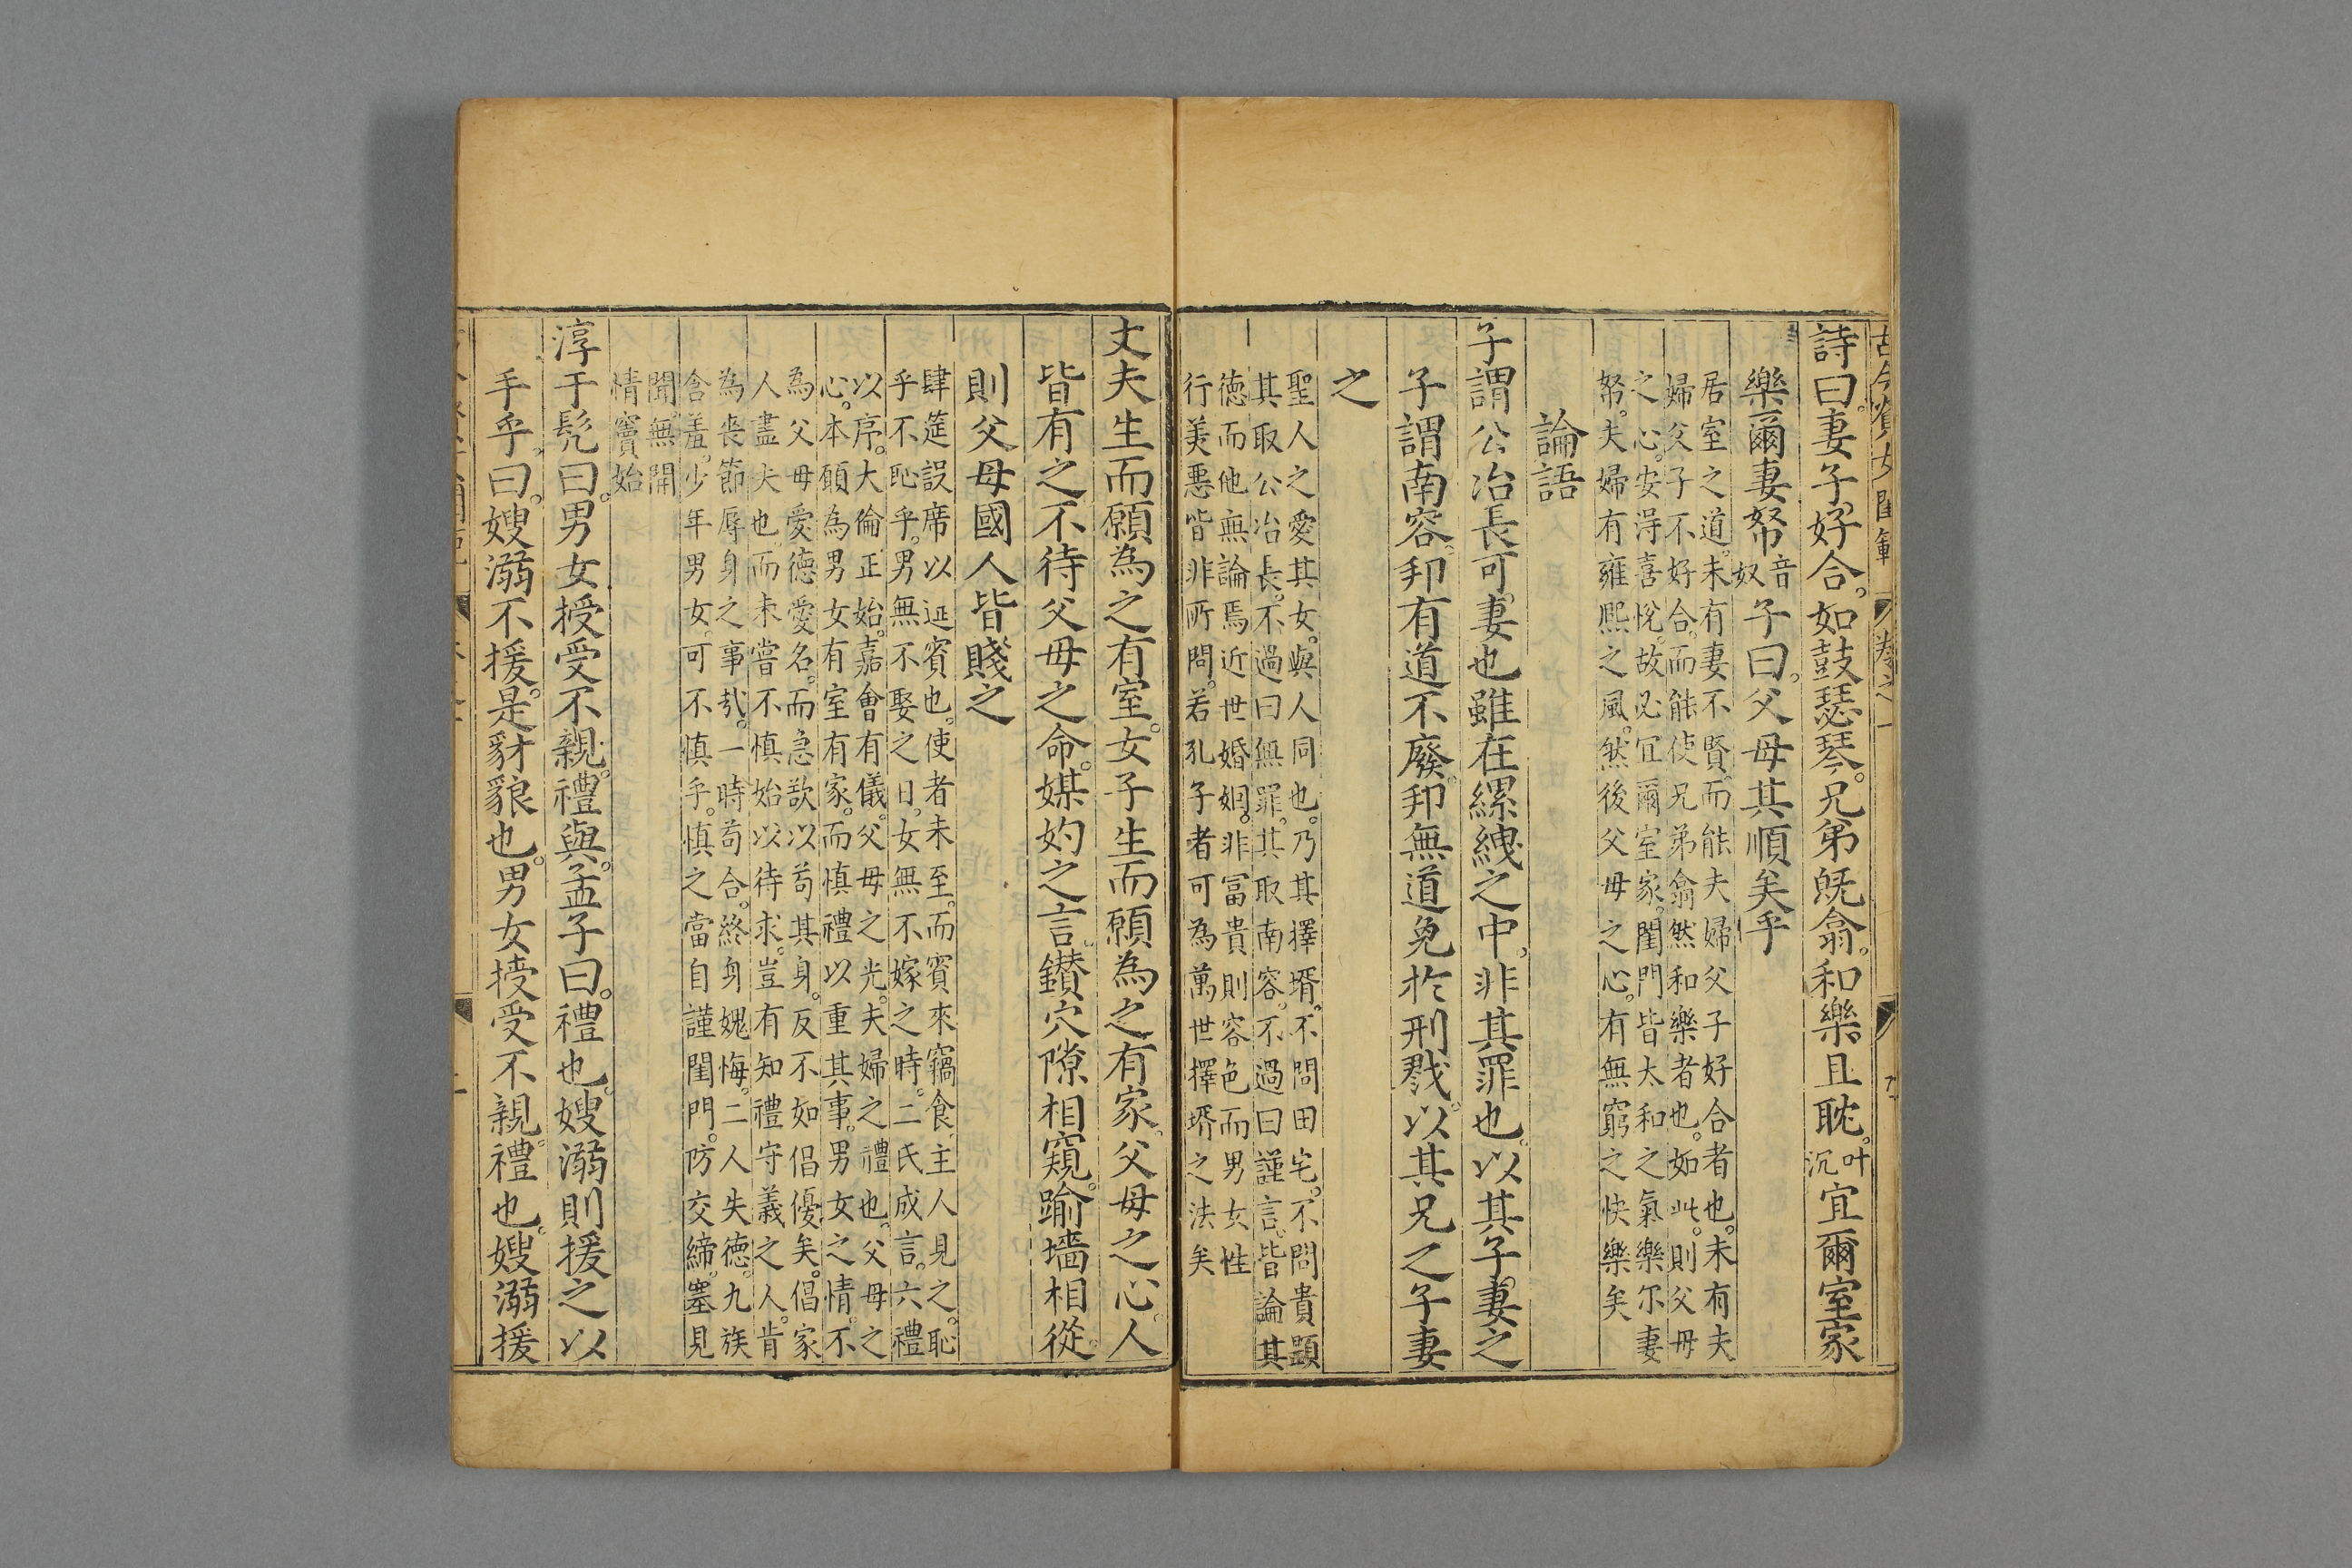 古今賢女閨範 卷之一
詩曰。妻子好合。如鼓瑟琴。兄弟旣翕。和樂且耽。叶沉宜爾室家
樂爾妻帑音奴子曰。父母其順矣乎
居室之道。未有妻不賢而能夫婦父子好合者也。未有夫
婦父子不好合。而能使兄弟翕然和樂者也。如此。則父母
之心。安得喜悅。故必宜爾室家。閨門皆太和之氣樂尔妻
帑。夫婦有雍熙之風。然後父母之心。有無窮之快樂矣
論語
子謂公冶長可妻也雖在縲絏之中。非其罪也。以其子妻之
子謂南容。邦有道不廢。邦無道免於刑戮。以其兄之子妻
之
聖人之愛其女。與人同也。乃其擇壻。不問田宅。不問貴顯
其取公冶長。不過曰無罪。其取南容。不過曰謹言。皆論其
德而他無論焉近世婚姻。非冨貴則容色而男女性
行美惡皆非所問。若孔子者可為萬世擇壻之法矣
丈夫生而願為之有室。女子生而願為之有家。父母之心。人
皆有之不待父母之命。媒妁之言。鑚穴隙相窺。踰墻相從。
則父母國人皆賤之
肆筵設席以延賓也。使者未至。而賓來竊食。主人見之。恥
乎不恥乎。男無不娶之日。女無不嫁之時。二氏成言。六禮
以序。大倫正始。嘉會有儀。父母之光。夫婦之禮也。父母之
心。本願為男女有室有家。而慎禮以重其事。男女之情。不
為父母愛德愛名。而急欲以苟其身。反不如倡優矣。倡家
人盡夫也。而未嘗不慎始以待求。豈有知禮守義之人。肯
為喪節辱身之事㢤。一時苟合。終身媿悔。二人失德。九族
含羞。少年男女。可不慎乎。慎之當自謹閨門。防交締。塞見
聞。無開
情竇始
淳于髡曰。男女授受不親。禮與。孟子曰。禮也。嫂溺則援之以
手乎。曰。嫂溺不援。是豺狼也。男女授受不親。禮也。嫂溺援